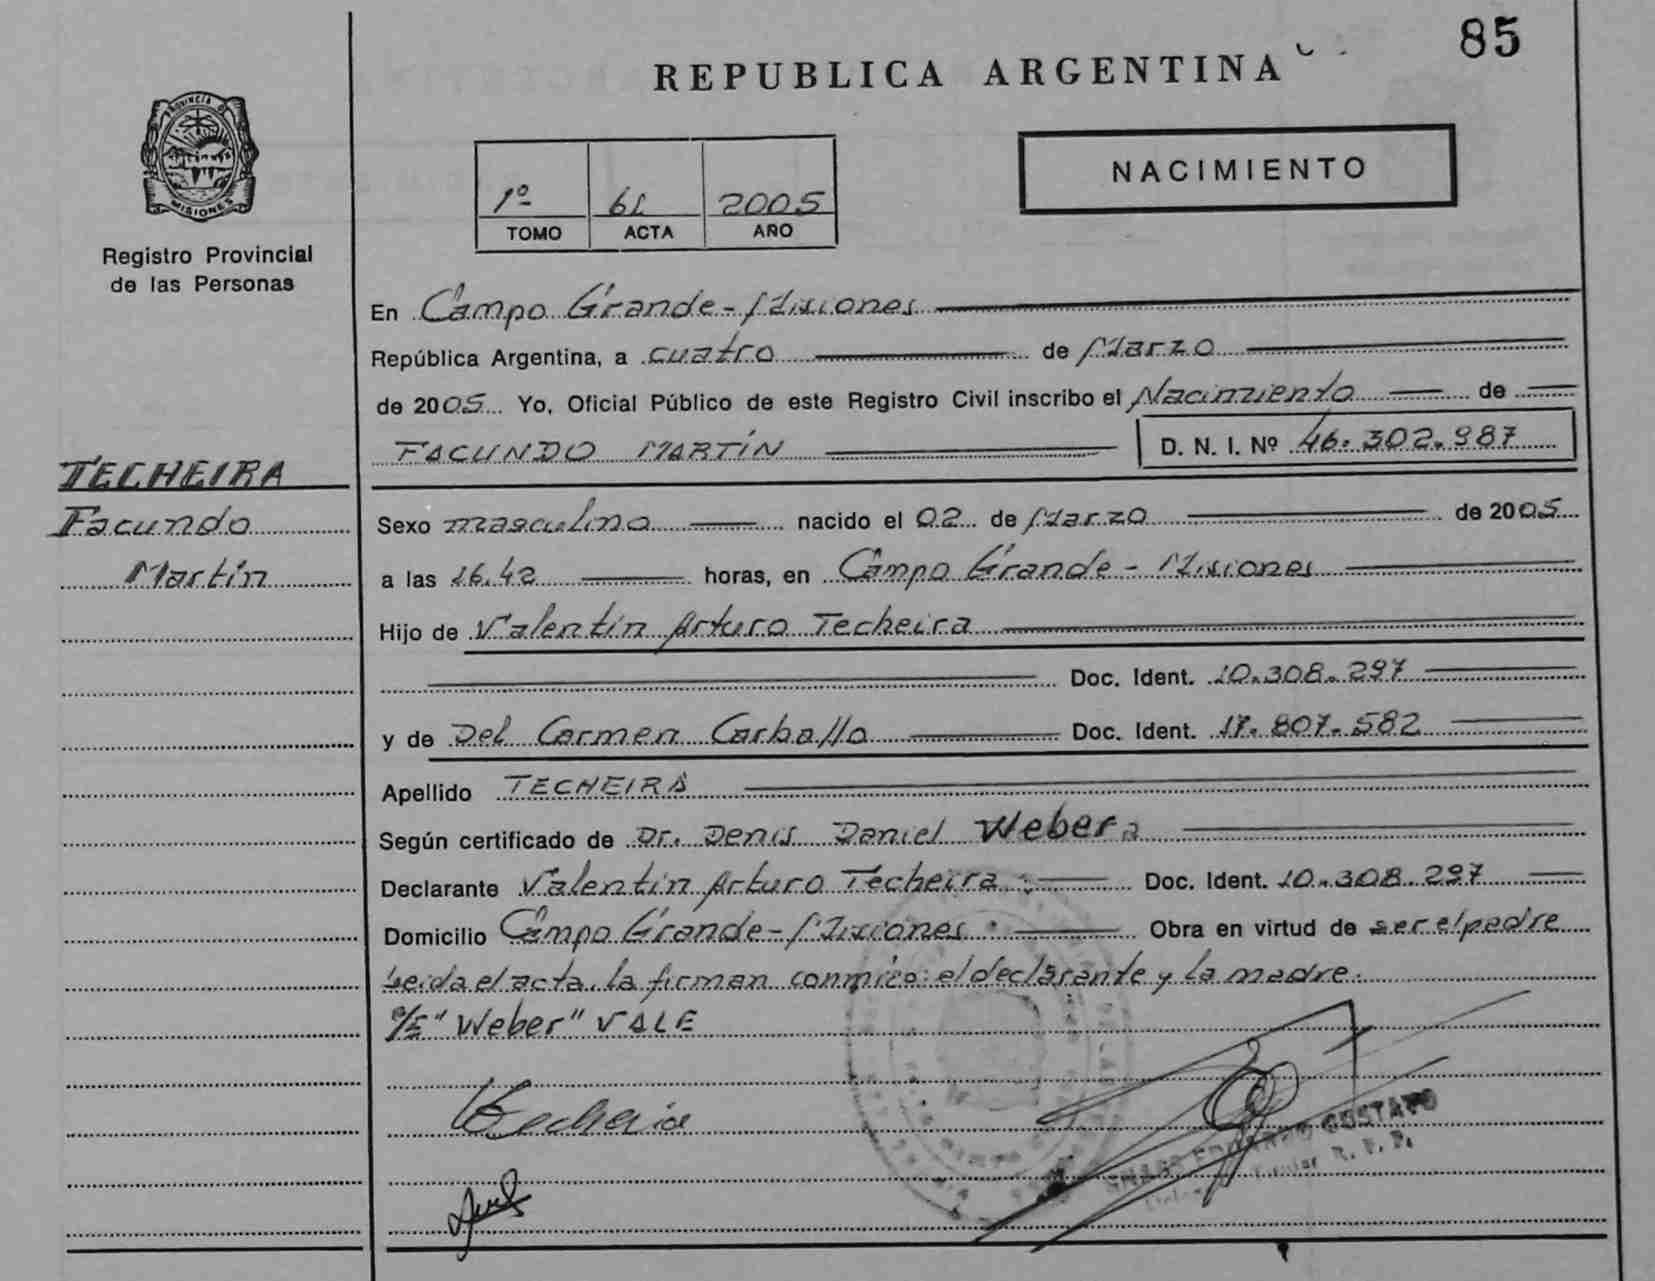 85
REPUBLICA ARGENTINA
PROVINCIA DE
MISIONES
Registro Provincial
de las Personas
NACIMIENTO
1º 61 2005
TOMO ACTA AÑO
En Campo Grande - Misiones
República Argentina, a cuatro de Marzo
de 2005 Yo, Oficial Público de este Registro Civil inscribo el Nacimiento de
FACUNDO MARTÍN D. N. I. Nº 46.302.987
TECHEIRA
Facundo
Martín
Sexo masculino nacido el 02 de Marzo de 2005
a las 16.42 horas, en Campo Grande - Misiones
Hijo de Valentín Arturo Techeira
Doc. Ident. 10.308.297
y de Del Carmen Carballo Doc. Ident. 17.807.582
Apellido TECHEIRA
Según certificado de Dr. Denis Daniel Weber
Declarante Valentín Arturo Techeira Doc. Ident. 10.308.297
Domicilio Campo Grande - Misiones Obra en virtud de ser el padre
Leida el acta, la firman conmigo: el declarante y la madre.
"Weber" VALE
Techeira
GUSTAVO
R. P. P.